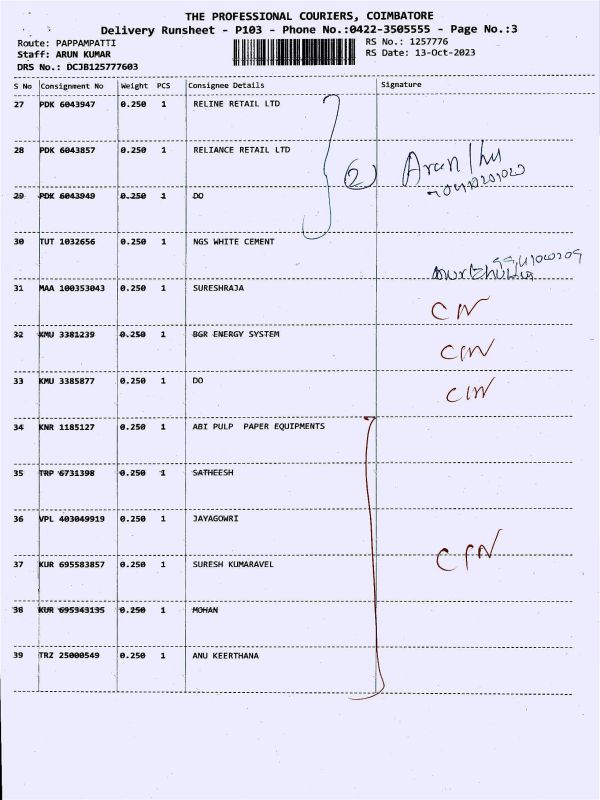 THE PROFESSIONAL COURIERS, COIMBATORE
Delivery Runsheet - P103 - Phone No.:0422-3505555 - Page No.:3
Route: PAPPAMPATTI
RS No.: 1257776
Staff: ARUN KUMAR
RS Date: 13-Oct-2023
DRS No.: DCJB125777603
S No Consignment No Weight PCS Consignee Details Signature
27 PDK 6043947 0.250 1 RELINE RETAIL LTD
28 PDK 6043857 0.250 1 RELIANCE RETAIL LTD
2 Arun
29 PDK 6043949 0.250 1 DO
30 TUT 1032656 0.250 1 NGS WHITE CEMENT
31 MAA 100353043 0.250 1 SURESHRAJA
CIN
32 KMU 3381239 0.250 1 BGR ENERGY SYSTEM
CIN
33 KMU 3385877 0.250 1 DO
CIN
34 KNR 1185127 0.250 1 ABI PULP PAPER EQUIPMENTS
35 TRP 6731398 0.250 1 SATHEESH
36 VPL 403049919 0.250 1 JAYAGOWRI
37 KUR 695583857 0.250 1 SURESH KUMARAVEL
CIN
38 KUR 695343135 0.250 1 MOHAN
39 TRZ 25000549 0.250 1 ANU KEERTHANA